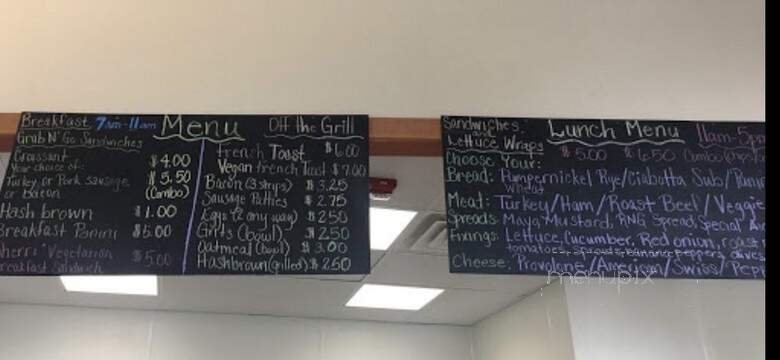 Breakfast 7am-11am Menu Off the Grill
Grab N' Go Sandwiches
Croissant $4.00
Your choice of:
Turkey or Pork sausage $5.50
or Bacon (Combo)
Hash brown $1.00
Breakfast Panini $5.00
Vegetarian $5.00
Breakfast Sandwich
French Toast $6.00
Vegan french Toast $7.00
Bacon (3 strips) $3.25
Sausage Patties $2.75
Eggs (2 any way) $2.50
Grits (bowl) $2.50
Oatmeal (bowl) $3.00
Hashbrown (grilled) $2.50
Sandwiches and Lunch Menu 11am-5pm
Lettuce Wraps $5.00 $6.50 Combo
Choose Your:
Bread: Pumpernickel Rye/Ciabatta Subs/Panin
Wheat
Meat: Turkey/Ham/Roast Beef/Veggie
Spreads: Mayo Mustard, RNG Spread, Special
Fixings: Lettuce, Cucumber, Red onion, roast
tomatoes, sprouts, banana peppers, olives
Cheese: Provolone/American/Swiss/Pepp
menupix